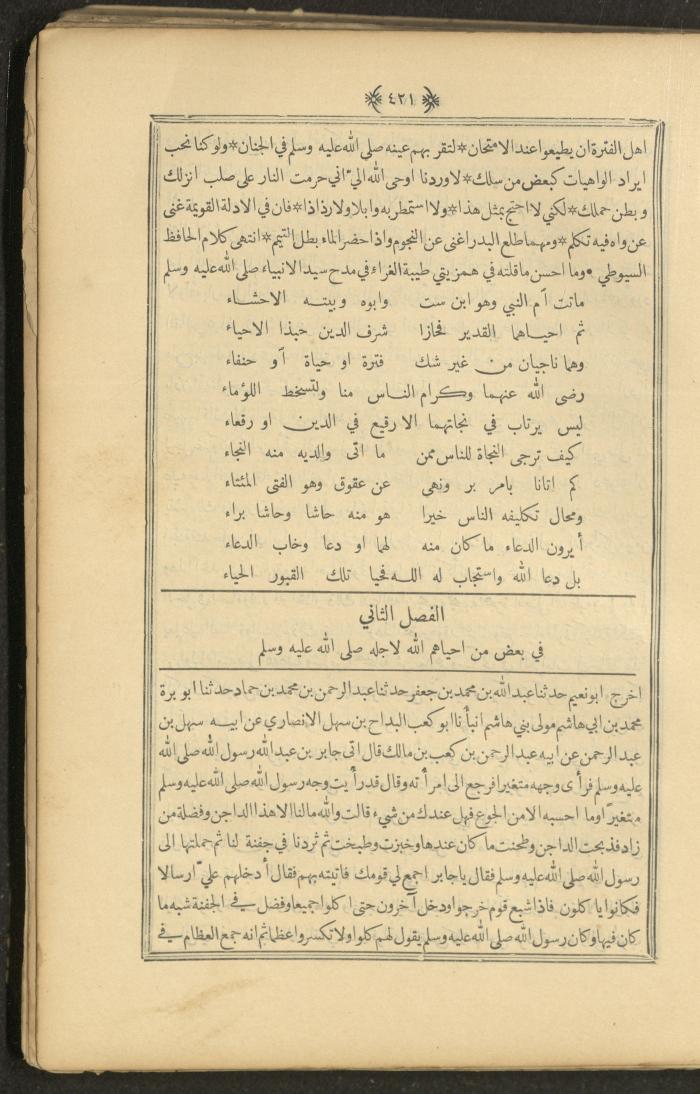 ﴿٤٢١﴾
اهل الفترة ان يطيعوا عند الامتحان * لتقر بهم عينه صلى الله عليه وسلم في الجنان * ولو كنا نحب
ايراد الواهيات كبعض من سلك * لاوردنا اوحى الله اليّ اني حرمت النار على صلب انزلك
وبطن حملك * لكني لا احتج بمثل هذا * ولا استمطر به وابلا ولا رذاذا * فان في الادلة القويمة غنى
عن واه فيه تكلم * ومهما طلع البدر اغنى عن النجوم واذا حضر الماء بطل التيمم * انتهى كلام الحافظ
السيوطي • وما احسن ما قلته في همزيتي طيبة الغراء في مدح سيد الانبياء صلى الله عليه وسلم
ماتت أم النبي وهو ابن ست وابوه وبيته الاحشاء
ثم احياهما القدير فحازا شرف الدين حبذا الاحياء
وهما ناجيان من غير شك فترة او حياة أو حنفاء
رضى الله عنهما وكرام الناس منا ولتسخط اللؤماء
ليس يرتاب في نجاتهما الا رقيع في الدين او رقعاء
كيف ترجى النجاة للناس ممن ما اتى والديه منه النجاء
كم اتانا بامر بر ونهى عن عقوق وهو الفتى المئتاء
ومحال تكليفه الناس خيرا هو منه حاشا وحاشا براء
أيرون الدعاء ما كان منه لهما او دعا وخاب الدعاء
بل دعا الله واستجاب له الله فحيا تلك القبور الحياء
الفصل الثاني
في بعض من احياهم الله لاجله صلى الله عليه وسلم
اخرج ابو نعيم حدثنا عبد الله بن محمد بن جعفر حدثنا عبد الرحمن بن محمد بن حماد حدثنا ابو برة
محمد بن ابي هاشم مولى بني هاشم انبأنا ابو كعب البداح بن سهل الانصاري عن ابيه سهل بن
عبد الرحمن عن ابيه عبد الرحمن بن كعب بن مالك قال اتى جابر بن عبد الله رسول الله صلى الله
عليه وسلم فرأى وجهه متغيرا فرجع الى امرأته وقال قد رأيت وجه رسول الله صلى الله عليه وسلم
متغيرًا وما احسبه الا من الجوع فهل عندك من شيء قالت والله ما لنا الا هذا الداجن وفضلة من
زاد فذبحت الداجن وطحنت ما كان عندها وخبزت وطبخت ثم ثردنا في جفنة لنا ثم حملتها الى
رسول الله صلى الله عليه وسلم فقال يا جابر اجمع لي قومك فاتيته بهم فقال أدخلهم عليّ ارسالا
فكانوا ياكلون فاذا شبع قوم خرجوا ودخل آخرون حتى اكلوا جميعا وفضل في الجفنة شبه ما
كان فيها وكان رسول الله صلى الله عليه وسلم يقول لهم كلوا ولا تكسروا عظما ثم انه جمع العظام في